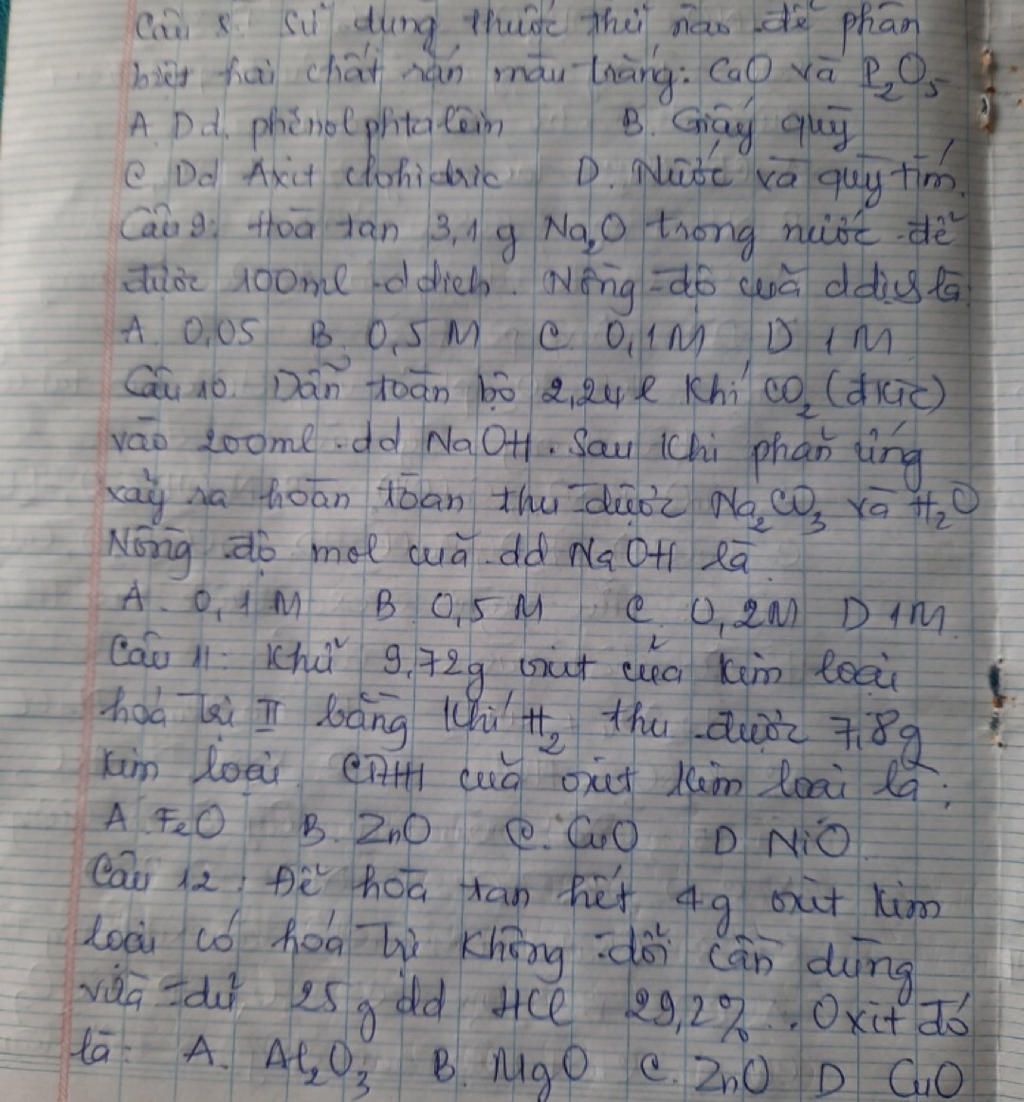 Câu 8: Sử dụng thuốc thử nào để phân
biệt hai chất rắn màu trắng: CaO và P₂O₅
A. Dd. phênolphtalêin B. Giấy quỳ
C. Dd Axit clohidric D. Nước và quỳ tím.
Câu 9: Hoà tan 3,1 g Na₂O trong nước để
được 100ml ddich. Nồng độ của ddịch là
A. 0,05 B. 0,5 M C. 0,1M D 1M
Câu 10. Dẫn toàn bộ 2,24 l khí CO₂ (đktc)
vào 200ml dd NaOH. Sau khi phản ứng
xảy ra hoàn toàn thu được Na₂CO₃ và H₂O
Nồng độ mol của dd NaOH là.
A. 0,1 M B. 0,5 M C. 0,2M D 1M.
Câu 11: Khử 9,72g oxit của kim loại
hoá trị II bằng khí H₂ thu được 7,8g
kim loại. CTHH của oxit kim loại là:
A. FeO B. ZnO C. CuO D NiO.
Câu 12: Để hoà tan hết 4g oxit kim
loại có hóa trị không đổi cần dùng
vừa đủ 25g dd HCl 29,2%. Oxit đó
là: A. Al₂O₃ B. MgO C. ZnO D CuO